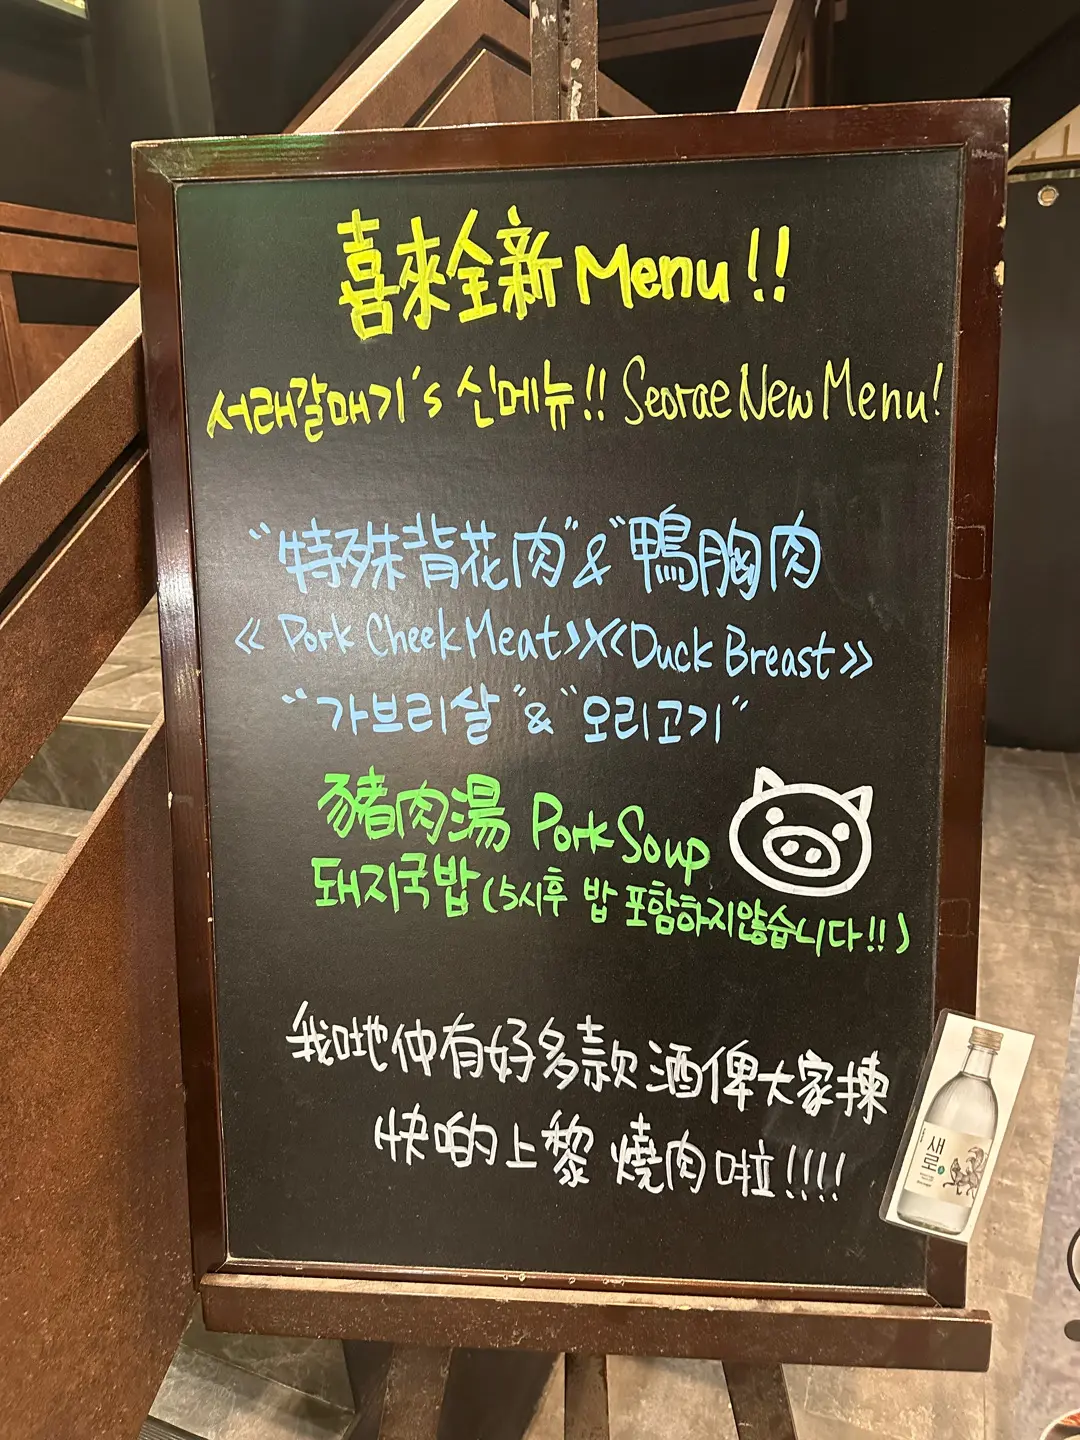 喜來全新 Menu!!
서래갈매기's 신메뉴!! Seorae New Menu!
"特殊背花肉" & "鴨胸肉"
<< Pork Cheek Meat>X<Duck Breast>>
"가브리살" & "오리고기"
豬肉湯 Pork Soup
돼지국밥 (5시후 밥 포함하지않습니다!!)
我哋仲有好多款酒俾大家揀
快啲上黎燒肉啦!!!!
새로